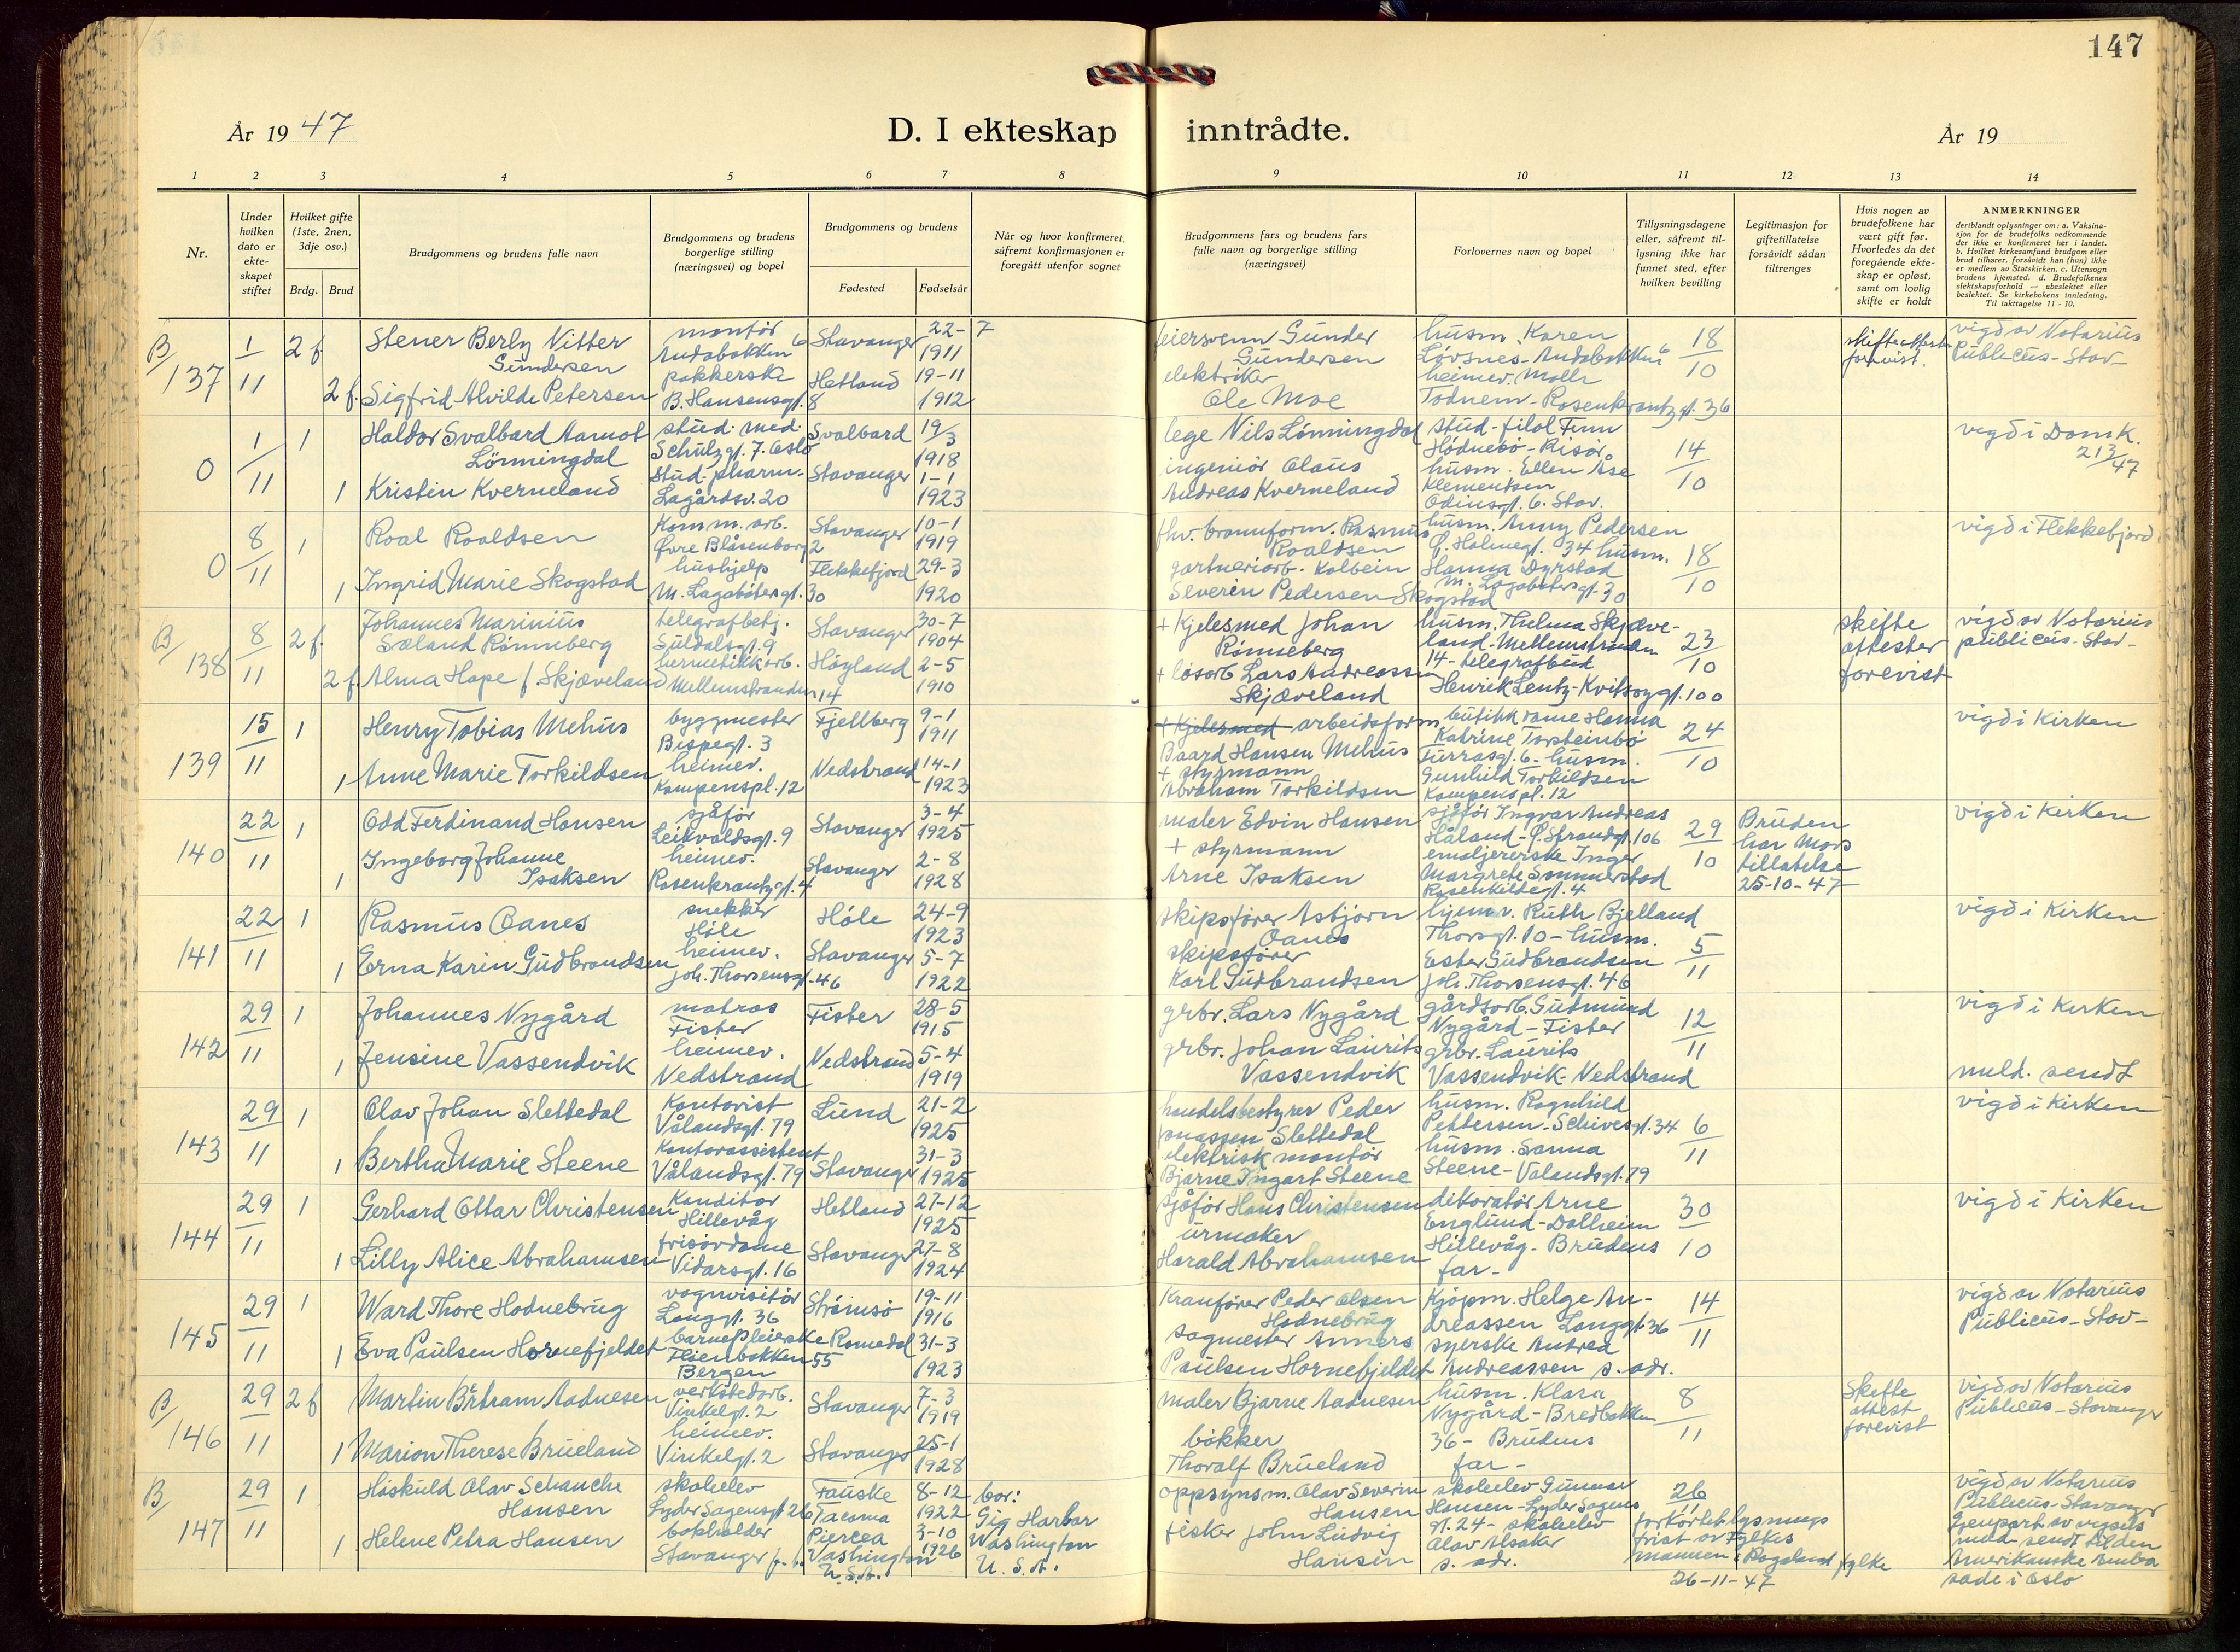 147
År 19 47
D. I ekteskap inntrådte.
År 19
1 2 3 4 5 6 7 8 9 10 11 12 13 14
Nr.
Under hvilken dato er ekteskapet stiftet
Hvilket gifte (1ste, 2nen, 3dje osv.)
Brdg. Brud
Brudgommens og brudens fulle navn
Brudgommens og brudens borgerlige stilling (næringsvei) og bopel
Brudgommens og brudens
Fødested
Fødselsår
Når og hvor konfirmeret, såfremt konfirmasjonen er foregått utenfor sognet
Brudgommens fars og brudens fars fulle navn og borgerlige stilling (næringsvei)
Forlovernes navn og bopel
Tillysningsdagene eller, såfremt tillysning ikke har funnet sted, efter hvilken bevilling
Legitimasjon for giftetillatelse forsåvidt sådan tiltrenges
Hvis nogen av brudefolkene har vært gift før. Hvorledes da det foregående ekteskap er opløst, samt om lovlig skifte er holdt
ANMERKNINGER
deriblandt oplysninger om: a. Vaksinasjon for de brudefolks vedkommende der ikke er konfirmeret her i landet. b. Hvilket kirkesamfund brudgom eller brud tilhører, forsåvidt han (hun) ikke er medlem av Statskirken. c. Utensogn brudens hjemsted. d. Brudefolkenes slektskapsforhold — ubeslektet eller beslektet. Se kirkebokens innledning. Til iakttagelse 11 - 10.
B/137
1/11
2 f.
Stener Berly Vitter
Gundersen
montør
Andabakken 6
Stavanger
22-7
1911
feiersvenn Gunder
Gundersen
husm. Karen
Løvsnes-Andabakken 6
18/10
skifteattest
forevist.
vigd av Notarius
Publicus-Stav-
2 f.
Sigfrid Alvilde Petersen
pakkerske
B. Hansensgt. 8
Hetland
19-11
1912
elektriker
Ole Moe
heimev. Molli
Todnem-Rosenkrantzgt. 36
0
1/11
1
Haldor Svalbard Aamot
Lönningdal
stud. med.
Schulzgt. 7. Oslo
Svalbard
19/3
1918
lege Nils Lönningdal
stud-filol Finn
Hödnebö-Risör
14/10
vigd i Domk.
213/47
1
Kristin Kverneland
stud. pharm.
Lagårdsv. 20
Stavanger
1-1
1923
ingeniör Olaus
Andreas Kverneland
husm. Ellen Åse
Klementsen
Odinsgt. 6. Stav.
0
8/11
1
Roal Roaldsen
Komm. arb.
Øvre Blåsenborg 2
Stavanger
10-1
1919
fhv. brannform. Rasmus
Roaldsen
husm. Anny Pedersen
Ø. Holmegt. 34 husm.
18/10
vigd i Flekkefjord
1
Ingrid Marie Skogstad
hushjelp
M. Lagabötersgt. 30
Flekkefjord
29-3
1920
gartneriarb. Kolbein
Severin Pedersen Skogstad
Hanna Dyrstad
M. Lagabötersgt. 30
B/138
8/11
2 f.
Johannes Marinius
Sæland Rønneberg
telegrafbetj.
Suldalsgt. 9
Stavanger
30-7
1904
+ Kjelesmed Johan
Rønneberg
husm. Thelma Skjæve-
land-Mellemstranden
23/10
skifte
attester
forevist
vigd av Notarius
publicus-Stav-
2 f.
Alma Hope f. Skjæveland
hermetikkarb.
Mellemstranden 14
Høyland
2-5
1910
+ lösarb Lars Andreassen
Skjæveland
14-telegrafbud
Henrik Lentz-Kvitsøygt. 100
139
15/11
1
Henry Tobias Mehus
byggmester
Bispegt. 3
Fjellberg
9-1
1911
+ Kjelesmed arbeidsform
Baard Hansen Mehus
butikkdame Hanna
Katrine Torsteinbö
24/10
vigd i Kirken
1
Anne Marie Torkildsen
heimev.
Kampenspl. 12
Nedstrand
14-1
1923
+ styrmann
Abraham Torkildsen
Turrasgt. 6-husm.
Gunhild Torkildsen
Kampenspl. 12
140
22/11
1
Odd Ferdinand Hansen
sjåför
Leikvoldsgt. 9
Stavanger
3-4
1925
maler Edvin Hansen
sjåför Ingvar Andreas
Håland-Ø. Strandgt. 106
29/10
Bruden
har Mors
tillatelse
25-10-47
vigd i Kirken
1
Ingeborg Johanne
Isaksen
heimev.
Rosenkrantzgt. 4
Stavanger
2-8
1928
+ styrmann
Arne Isaksen
emaljererske Inger
Margrete Sommerstad
Rosenkildegt. 4
141
22/11
1
Rasmus Oanes
snekker
Höle
Höle
24-9
1923
skipsförer Asbjørn
Oanes
hjemv. Ruth Bjelland
Thorsgt. 10-husm.
5/11
vigd i Kirken
1
Erna Karin Gudbrandsen
heimev.
Joh. Thorsensgt. 46
Stavanger
5-7
1922
skipsfører
Karl Gudbrandsen
Ester Gudbrandsen
Joh. Thorsensgt. 46
142
29/11
1
Johannes Nygård
matros
Fister
Fister
28-5
1915
grbr. Lars Nygård
gårdsarb. Gudmund
Nygård-Fister
12/11
vigd i Kirken
1
Jensine Vassendvik
heimev.
Nedstrand
Nedstrand
5-4
1919
grbr. Johan Laurits
Vassendvik
grbr. Laurits
Vassendvik-Nedstrand
meld. sendt
143
29/11
1
Olav Johan Slettedal
Kontorist
Vålandsgt. 79
Lund
21-2
1925
handelsbestyrer Peder
Jonassen Slettedal
husm. Ragnhild
Pettersen-Schivesgt. 34
6/11
vigd i Kirken
1
Bertha Marie Steene
Kontorassistent
Vålandsgt. 79
Stavanger
31-3
1925
elektrisk montør
Bjarne Ingart Steene
husm. Sanna
Steene-Vålandsgt. 79
144
29/11
1
Gerhard Ottar Christensen
Konditor
Hillevåg
Hetland
27-12
1925
sjåför Hans Christensen
dekoratör Arne
Englund-Dalheim
30/10
vigd i Kirken
1
Lilly Alice Abrahamsen
frisördame
Vidarsgt. 16
Stavanger
27-8
1924
urmaker
Harald Abrahamsen
Hillevåg-Brudens
far-
145
29/11
1
Ward Thore Hodnebrug
vognvisitör
Langgt. 36
Strömsö
19-11
1916
Kranfører Peder Olsen
Hodnebrug
Kjøpm. Helge An-
dreassen Langgt. 36
14/11
vigd av Notarius
Publicus-Stav-
1
Eva Paulsen Hornefjeldet
barnepleierske
Fløenbakken 55
Bergen
Romedal
31-3
1923
sagmester Anners
Paulsen Hornefjeldet
syerske Andrea
Andreassen s. adr.
B/146
29/11
2 f
Martin Bertram Aadnesen
verkstedarb.
Vinkelgt. 2
Stavanger
7-3
1919
maler Bjarne Aadnesen
husm. Klara
Nygård-Bredbakken
8/11
Skifte
attest
forevist
vigd av Notarius
Publicus-Stavanger
1
Marion Therese Brueland
heimev.
Vinkelgt. 2
Stavanger
25-1
1928
bökker
Thoralf Brueland
36-Brudens
far-
B/147
29/11
1
Høskuld Olav Schanche
Hansen
skoleelev
Lyder Sagensgt 26
Fauske
8-12
1922
bor:
Gig Harbor
Washington
U.S.A.
oppsynsm. Olav Severin
Hansen
skoleelev Gunnar
Hansen-Lyder Sagens
gt. 24-skoleelev
26/11
forkortet lysnings
frist av Fylkes
mannen i Rogaland fylke
26-11-47
vigd av Notarius
Publicus-Stavanger
Gjenpart av vigsels
meld. sendt til den
Amerikanske Amba
sade i Oslo
1
Helene Petra Hansen
bokholder
Stavanger f. t.
Tacoma
Piercea
Washington
U.S.A.
3-10
1926
fisker John Ludvig
Hansen
Olav Alsaker
s. adr.